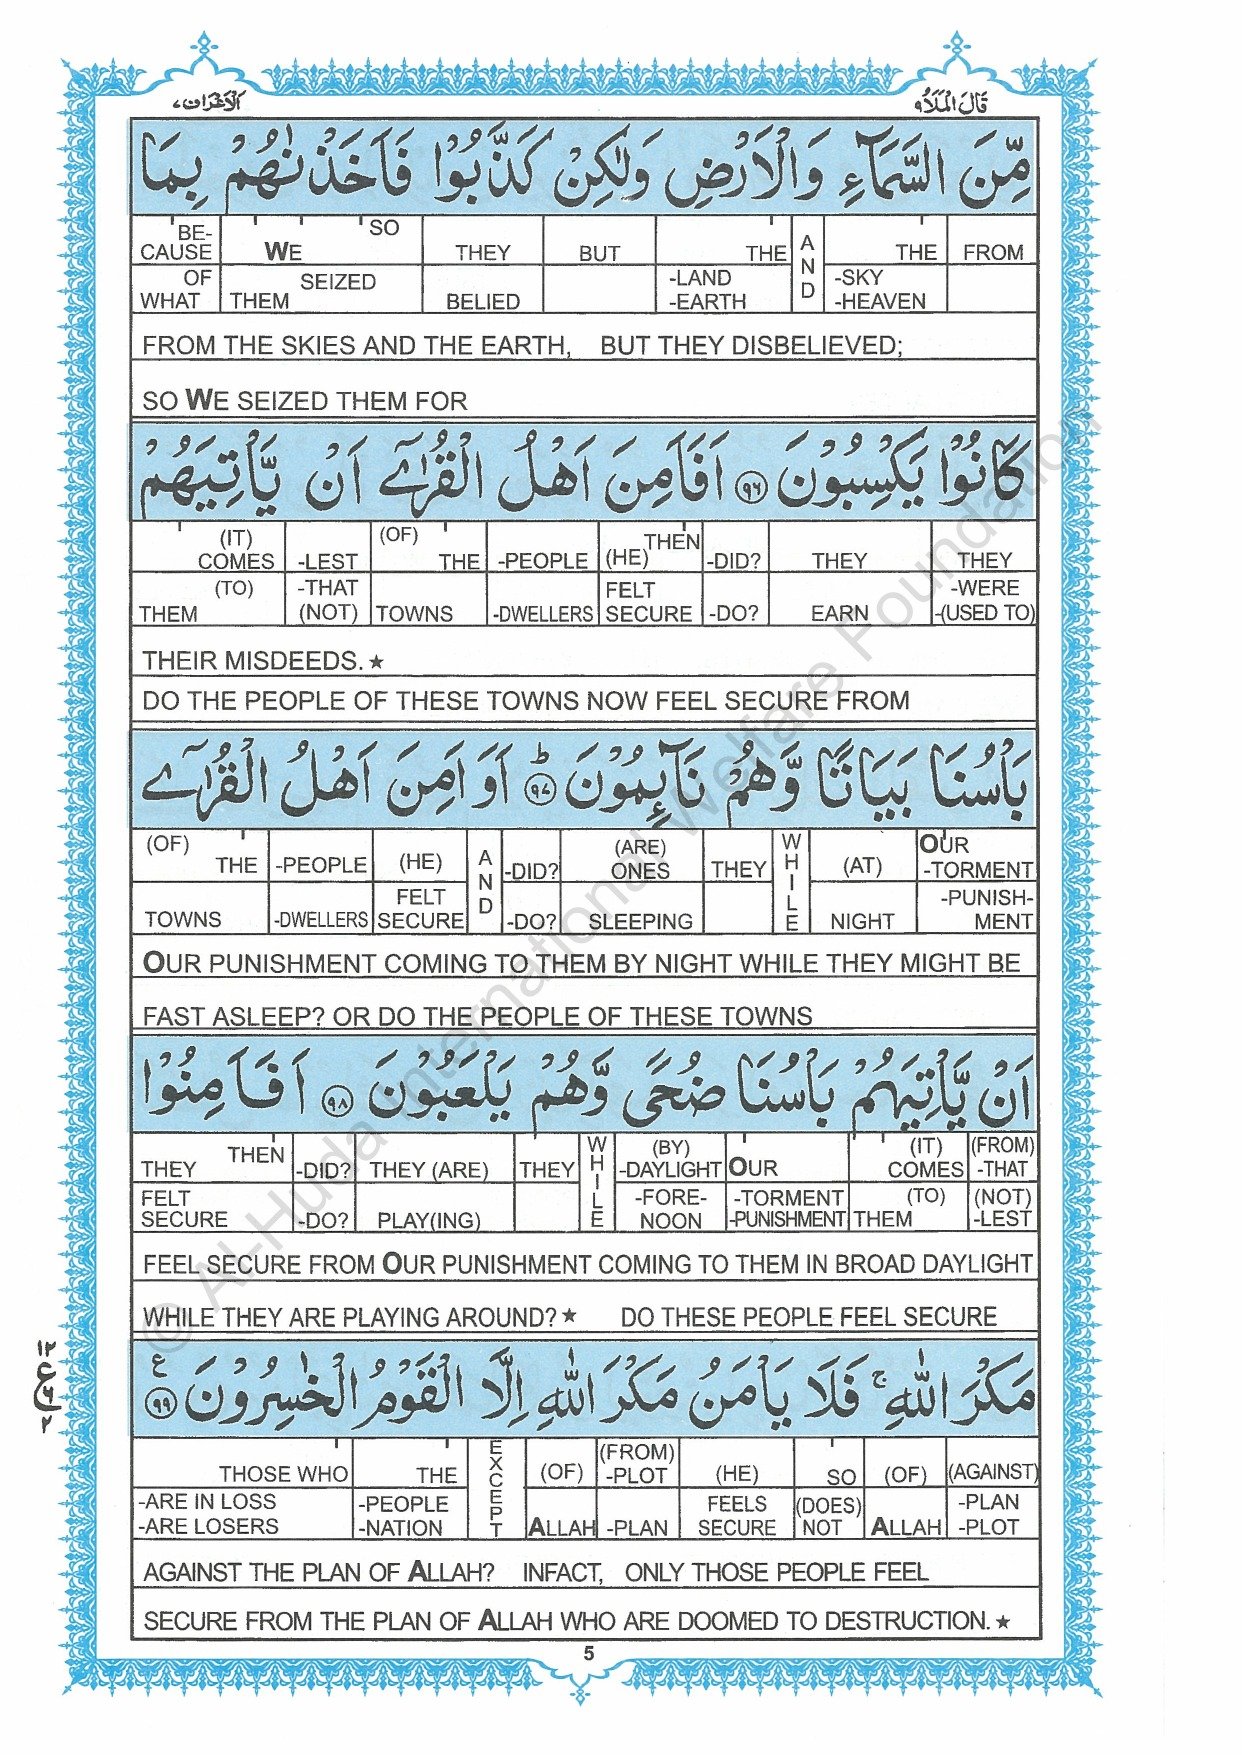 قَالَ الْمَلَاُ ٩
اَلْاَعْرَاف ٧
مِّنَ السَّمَآءِ وَالْاَرْضِ وَلٰكِنْ كَذَّبُوْا فَاَخَذْنٰهُمْ بِمَا
BE- SO
CAUSE WE THEY BUT THE AND THE FROM
OF SEIZED -LAND -SKY
WHAT THEM BELIED -EARTH -HEAVEN
FROM THE SKIES AND THE EARTH, BUT THEY DISBELIEVED;
SO WE SEIZED THEM FOR
كَانُوْا يَكْسِبُوْنَ ٩٦ اَفَاَمِنَ اَهْلُ الْقُرٰٓى اَنْ يَّاْتِيَهُمْ
(IT) (OF) THEN
COMES -LEST THE -PEOPLE (HE) -DID? THEY THEY
(TO) -THAT FELT -WERE
THEM (NOT) TOWNS -DWELLERS SECURE -DO? EARN -(USED TO)
THEIR MISDEEDS. ★
DO THE PEOPLE OF THESE TOWNS NOW FEEL SECURE FROM
بَاْسُنَا بَيَاتًا وَّهُمْ نَآئِمُوْنَ ٩٧ ط اَوَاَمِنَ اَهْلُ الْقُرٰٓى
(OF) (ARE) OUR
THE -PEOPLE (HE) AND -DID? ONES THEY WHILE (AT) -TORMENT
FELT -PUNISH-
TOWNS -DWELLERS SECURE -DO? SLEEPING NIGHT MENT
OUR PUNISHMENT COMING TO THEM BY NIGHT WHILE THEY MIGHT BE
FAST ASLEEP? OR DO THE PEOPLE OF THESE TOWNS
اَنْ يَّاْتِيَهُمْ بَاْسُنَا ضُحًى وَّهُمْ يَلْعَبُوْنَ ٩٨ اَفَاَمِنُوْا
THEN (BY) (IT) (FROM)
THEY -DID? THEY (ARE) THEY WHILE -DAYLIGHT OUR COMES -THAT
FELT -FORE- -TORMENT (TO) (NOT)
SECURE -DO? PLAY(ING) NOON -PUNISHMENT THEM -LEST
FEEL SECURE FROM OUR PUNISHMENT COMING TO THEM IN BROAD DAYLIGHT
WHILE THEY ARE PLAYING AROUND? ★ DO THESE PEOPLE FEEL SECURE
مَكْرَ اللّٰهِ ج فَلَا يَاْمَنُ مَكْرَ اللّٰهِ اِلَّا الْقَوْمُ الْخٰسِرُوْنَ ٩٩ ع
١٢
ع
٢
(FROM)
THOSE WHO THE EXCEPT (OF) -PLOT (HE) SO (OF) (AGAINST)
-ARE IN LOSS -PEOPLE FEELS (DOES) -PLAN
-ARE LOSERS -NATION ALLAH -PLAN SECURE NOT ALLAH -PLOT
AGAINST THE PLAN OF ALLAH? INFACT, ONLY THOSE PEOPLE FEEL
SECURE FROM THE PLAN OF ALLAH WHO ARE DOOMED TO DESTRUCTION. ★
5
© Al-Huda International Welfare Foundation